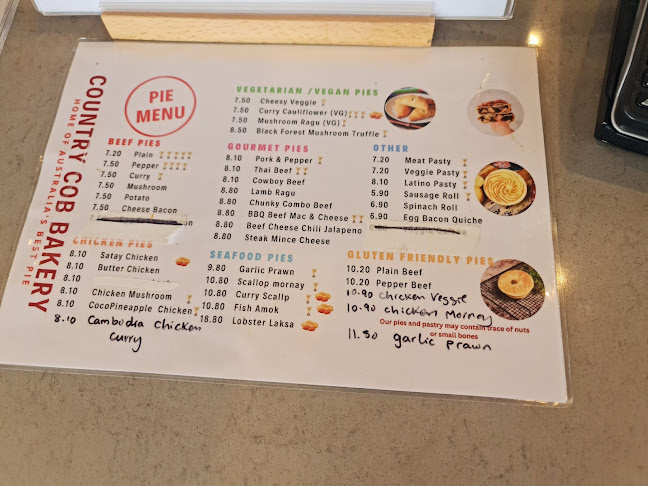 COUNTRY COB BAKERY
HOME OF AUSTRALIA'S BEST PIE
PIE
MENU
BEEF PIES
7.20 Plain
7.50 Pepper
7.50 Curry
7.50 Mushroom
7.50 Potato
7.50 Cheese Bacon
CHICKEN PIES
8.10 Satay Chicken
8.10 Butter Chicken
8.10
8.10 Chicken Mushroom
8.10 CocoPineapple Chicken
8.10 Cambodia chicken
curry
VEGETARIAN /VEGAN PIES
7.50 Cheesy Veggie
7.50 Curry Cauliflower (VG)
7.50 Mushroom Ragu (VG)
8.50 Black Forest Mushroom Truffle
GOURMET PIES
8.10 Pork & Pepper
8.10 Thai Beef
8.10 Cowboy Beef
8.80 Lamb Ragu
8.80 Chunky Combo Beef
8.80 BBQ Beef Mac & Cheese
8.80 Beef Cheese Chili Jalapeno
8.80 Steak Mince Cheese
SEAFOOD PIES
9.80 Garlic Prawn
10.80 Scallop mornay
10.80 Curry Scallp
10.80 Fish Amok
18.80 Lobster Laksa
OTHER
7.20 Meat Pasty
7.20 Veggie Pasty
8.10 Latino Pasty
5.90 Sausage Roll
6.90 Spinach Roll
6.90 Egg Bacon Quiche
GLUTEN FRIENDLY PIES
10.20 Plain Beef
10.20 Pepper Beef
10.90 chicken Veggie
10.90 chicken Mornay
Our pies and pastry may contain trace of nuts
or small bones
11.50 garlic prawn